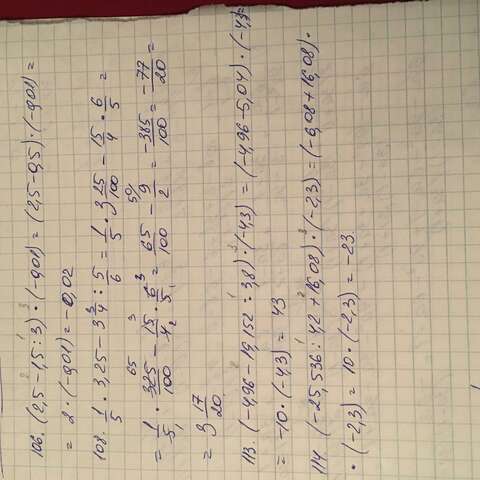 106. (2,5-1,5:3)·(-0,01) = (2,5-0,5)·(-0,01) =
= 2·(-0,01) = -0,02
108. 1/5 · 3,25 - 3 3/4 : 5/6 = 1/5 · 3 25/100 - 15/4 · 6/5 =
= 1/5 · 325/100 - 15/4 · 6/5 = 65/100 - 9/2 = -385/100 = -77/20 =
= 3 17/20
113. (-4,96-19,152:3,8)·(-4,3) = (-4,96-5,04)·(-4,3) =
= -10·(-4,3) = 43
114. (-25,536:4,2+16,08)·(-2,3) = (-6,08+16,08)·
·(-2,3) = 10·(-2,3) = -23.